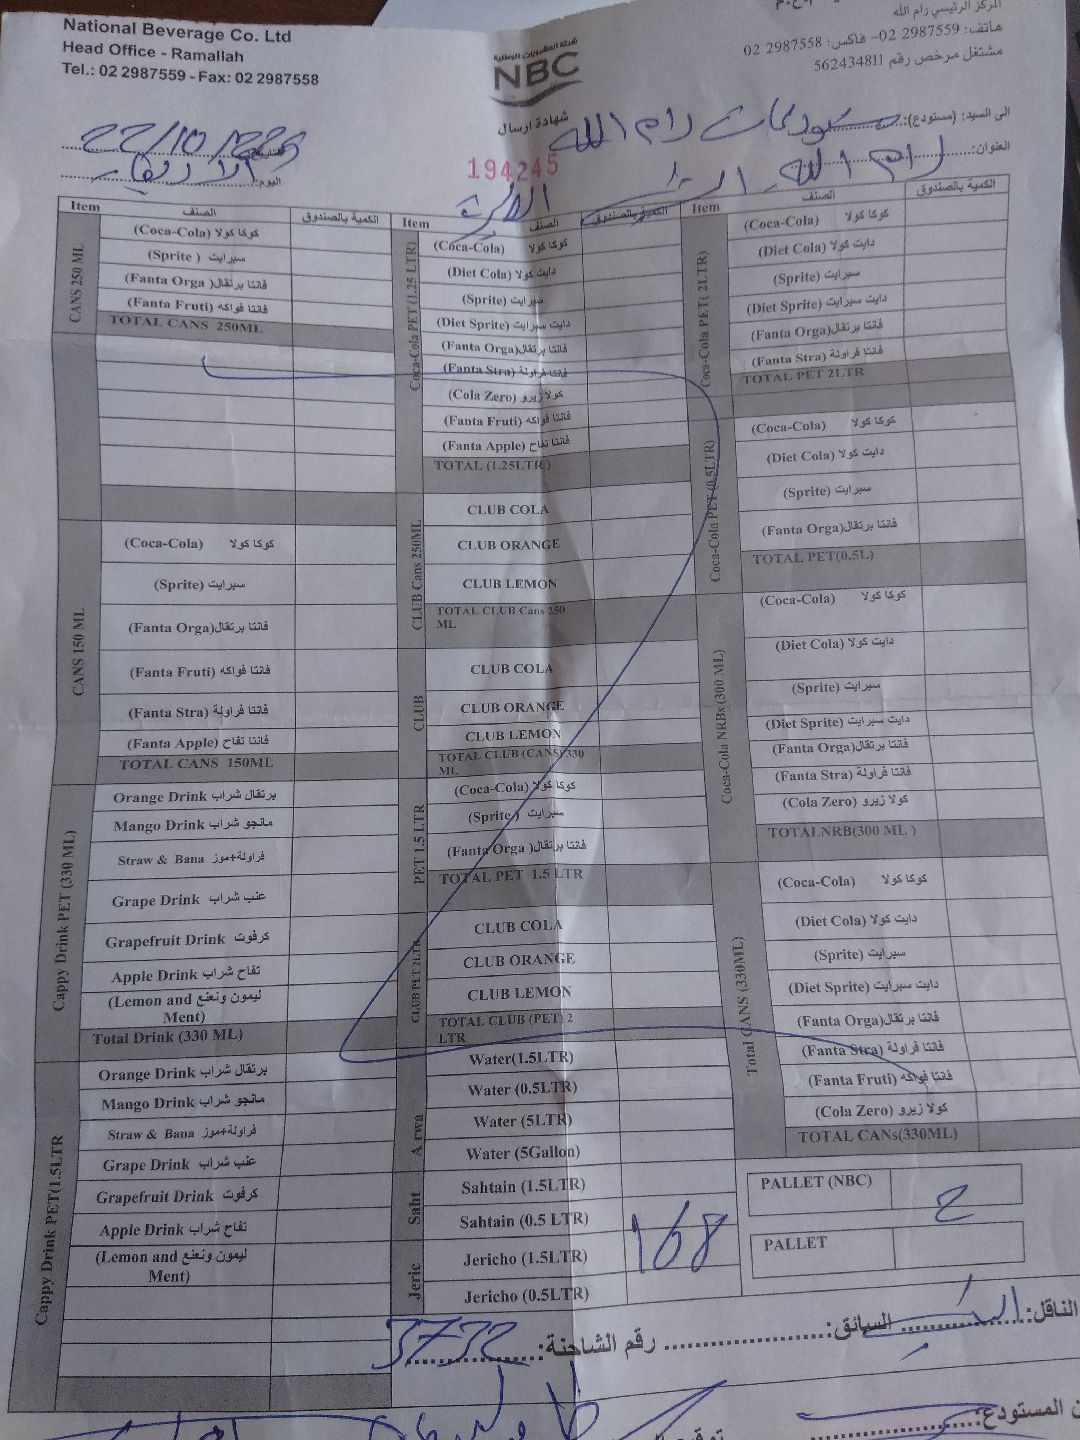 National Beverage Co. Ltd
Head Office - Ramallah
Tel.: 02 2987559 - Fax: 02 2987558
شركة المشروبات الوطنية
NBC
المركز الرئيسي رام الله
هاتف: 2987559 02 – فاكس: 2987558 02
مشتغل مرخص رقم 562434811
شهادة ارسال
الى السيد: (مستودع): رام الله
العنوان: رام الله
22/10/
اليوم: الاربعاء
194245
Item الصنف الكمية بالصندوق
CANS 250 ML
(Coca-Cola) كوكا كولا
(Sprite ) سبرايت
(Fanta Orga )فانتا برتقال
(Fanta Fruti) فانتا فواكه
TOTAL CANS 250ML
CANS 150 ML
(Coca-Cola) كوكا كولا
(Sprite) سبرايت
(Fanta Orga)فانتا برتقال
(Fanta Fruti) فانتا فواكه
(Fanta Stra) فانتا فراولة
(Fanta Apple) فانتا تفاح
TOTAL CANS 150ML
Cappy Drink PET (330 ML)
Orange Drink برتقال شراب
Mango Drink مانجو شراب
Straw & Bana فراولة+موز
Grape Drink عنب شراب
Grapefruit Drink كرفوت
Apple Drink تفاح شراب
(Lemon and ليمون ونعنع
Ment)
Total Drink (330 ML)
Cappy Drink PET(1.5LTR
Orange Drink برتقال شراب
Mango Drink مانجو شراب
Straw & Bana فراولة+موز
Grape Drink عنب شراب
Grapefruit Drink كرفوت
Apple Drink تفاح شراب
(Lemon and ليمون ونعنع
Ment)
Item الصنف الكمية بالصندوق
Coca-Cola PET (1.25 LTR)
(Coca-Cola) كوكا كولا
(Diet Cola) دايت كولا
(Sprite) سبرايت
(Diet Sprite) دايت سبرايت
(Fanta Orga)فانتا برتقال
(Fanta Stra) فانتا فراولة
(Cola Zero) كولا زيرو
(Fanta Fruti) فانتا فواكه
(Fanta Apple) فانتا تفاح
TOTAL (1.25LTR)
CLUB Cans 250ML
CLUB COLA
CLUB ORANGE
CLUB LEMON
TOTAL CLUB Cans 250
ML
CLUB
CLUB COLA
CLUB ORANGE
CLUB LEMON
TOTAL CLUB (CANS) 330
ML
PET 1.5 LTR
(Coca-Cola) كوكا كولا
(Sprite ) سبرايت
(Fanta Orga )فانتا برتقال
TOTAL PET 1.5 LTR
CLUB PET 2LTR
CLUB COLA
CLUB ORANGE
CLUB LEMON
TOTAL CLUB (PET) 2
LTR
Arwa
Water(1.5LTR)
Water (0.5LTR)
Water (5LTR)
Water (5Gallon)
Saht
Sahtain (1.5LTR)
Sahtain (0.5 LTR)
Jeric
Jericho (1.5LTR)
Jericho (0.5LTR)
168
Item الصنف الكمية بالصندوق
Coca-Cola PET( 2LTR)
(Coca-Cola) كوكا كولا
(Diet Cola) دايت كولا
(Sprite) سبرايت
(Diet Sprite) دايت سبرايت
(Fanta Orga)فانتا برتقال
(Fanta Stra) فانتا فراولة
TOTAL PET 2LTR
Coca-Cola PET (0.5LTR)
(Coca-Cola) كوكا كولا
(Diet Cola) دايت كولا
(Sprite) سبرايت
(Fanta Orga)فانتا برتقال
TOTAL PET(0.5L)
Coca-Cola NRBs(300 ML)
(Coca-Cola) كوكا كولا
(Diet Cola) دايت كولا
(Sprite) سبرايت
(Diet Sprite) دايت سبرايت
(Fanta Orga)فانتا برتقال
(Fanta Stra) فانتا فراولة
(Cola Zero) كولا زيرو
TOTALNRB(300 ML )
Total CANS (330ML)
(Coca-Cola) كوكا كولا
(Diet Cola) دايت كولا
(Sprite) سبرايت
(Diet Sprite) دايت سبرايت
(Fanta Orga)فانتا برتقال
(Fanta Stra) فانتا فراولة
(Fanta Fruti) فانتا فواكه
(Cola Zero) كولا زيرو
TOTAL CANs(330ML)
PALLET (NBC)
PALLET
الناقل: السائق: رقم الشاحنة: 3732
المستودع: